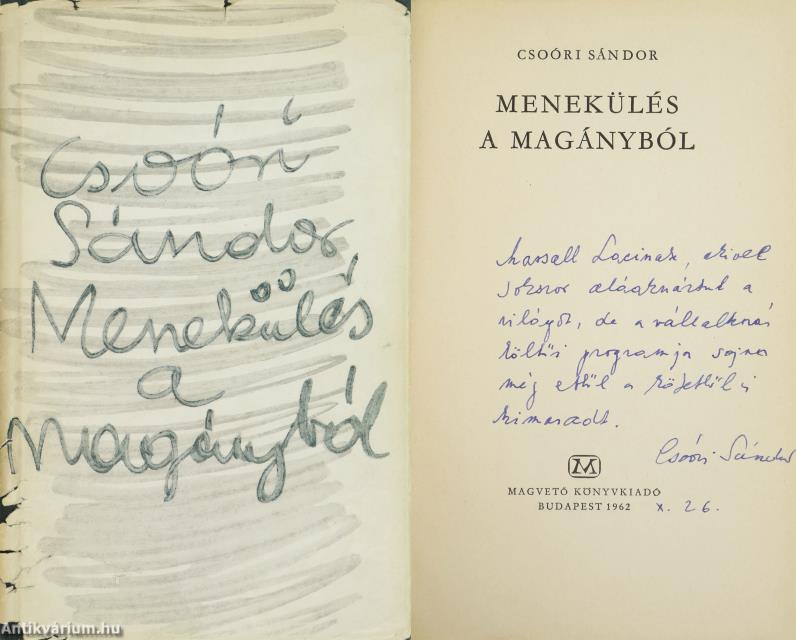 Csoóri
Sándor
Menekülés
a
magányból
CSOÓRI SÁNDOR
MENEKÜLÉS
A MAGÁNYBÓL
Marsall Lacinak, akivel
sokszor aláaknáztuk a
világot, de a vállalkozás
költői programja sajnos
még ebből a kötetből is
kimaradt.
Csoóri Sándor
M
MAGVETŐ KÖNYVKIADÓ
BUDAPEST 1962
X. 26.
Antikvárium.hu